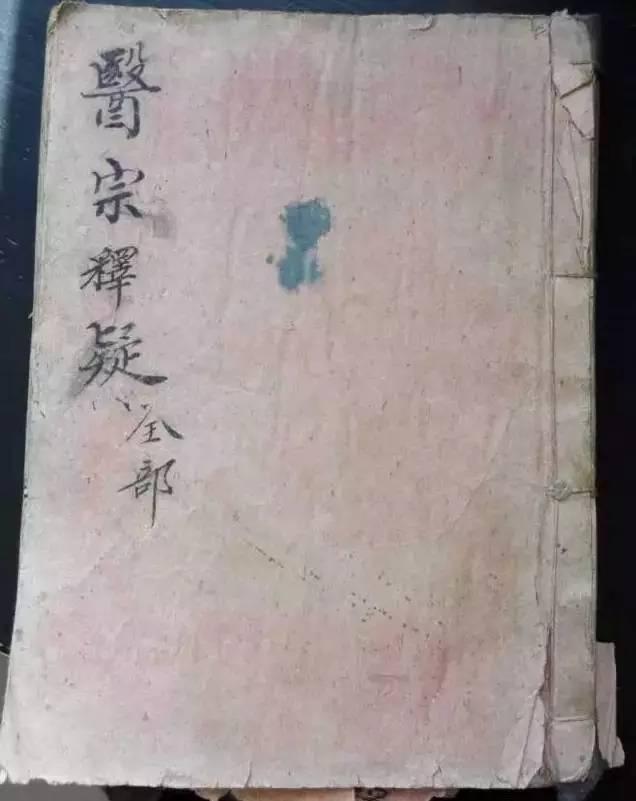 醫宗釋疑
全部